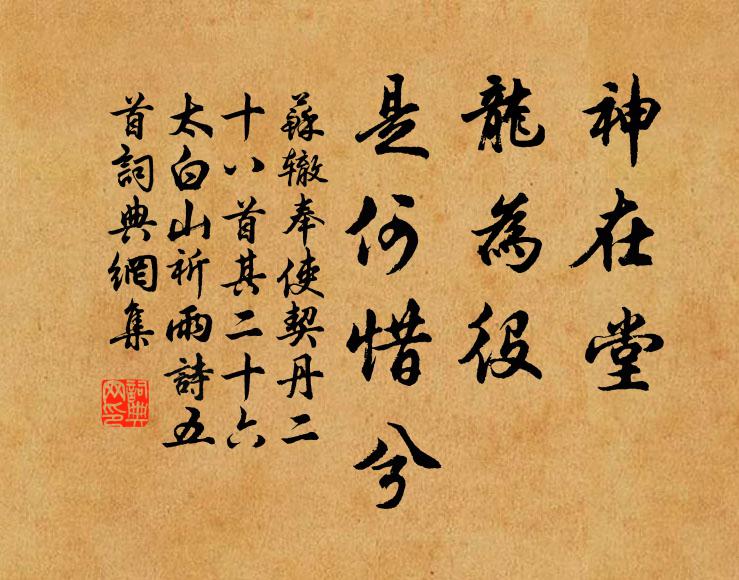 神在堂
龍為役
是何惜兮
蘇轍奉使契丹二
十八首其二十六
太白山祈雨詩五
首詞典網集
詞典網印